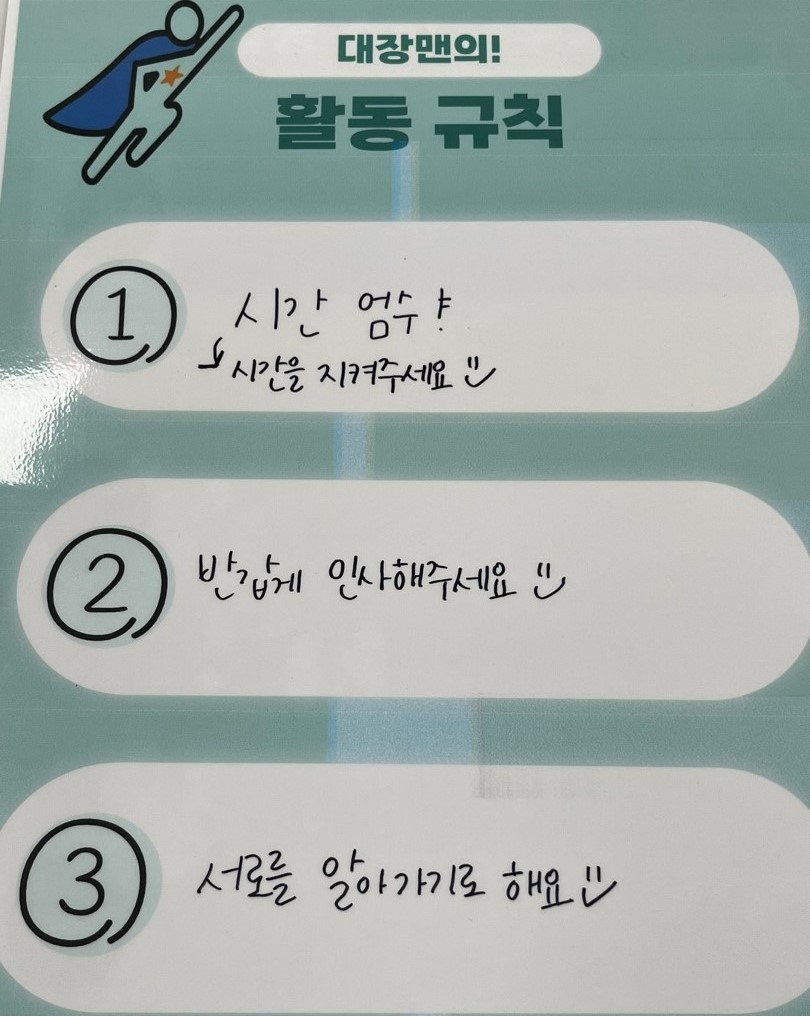 대장맨의!
활동 규칙
1 시간 엄수!
시간을 지켜주세요
2 반갑게 인사해주세요
3 서로를 알아가기로 해요